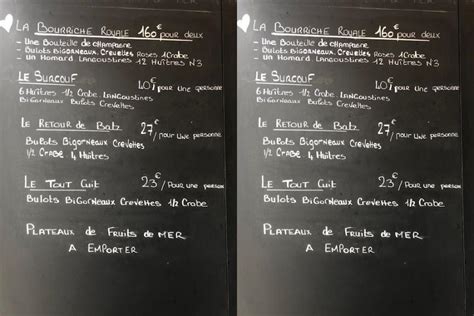 La Bourriche Royale 160€ pour deux
- Une Bouteille de champagne
- Bulots Bigorneaux Crevettes Roses 1 Crabe
- un Homard Langoustines 12 Huîtres N3
Le Surcouf 40€/pour une personne
6 Huîtres - 1/2 Crabe Langoustines
Bigorneaux Bulots Crevettes
Le Retour de Batz 27€/pour une personne
Bulots Bigorneaux Crevettes
1/2 Crabe 4 Huîtres
Le Tout Cuit 23€/Pour une person
Bulots Bigorneaux Crevettes 1/2 Crabe
Plateaux de Fruits de MER
A EMPORTER
La Bourriche Royale 160€ pour deux
- Une Bouteille de champagne
- Bulots Bigorneaux Crevettes Roses 1 Crabe
- un Homard Langoustines 12 Huîtres N3
Le Surcouf 40€/pour une personne
6 Huîtres - 1/2 Crabe Langoustines
Bigorneaux Bulots Crevettes
Le Retour de Batz 27€/pour une personne
Bulots Bigorneaux Crevettes
1/2 Crabe 4 Huîtres
Le Tout Cuit 23€/Pour une person
Bulots Bigorneaux Crevettes 1/2 Crabe
Plateaux de Fruits de MER
A EMPORTER